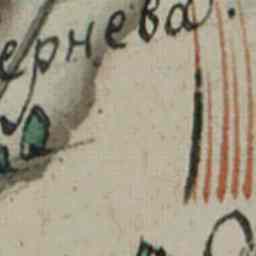 ернева.